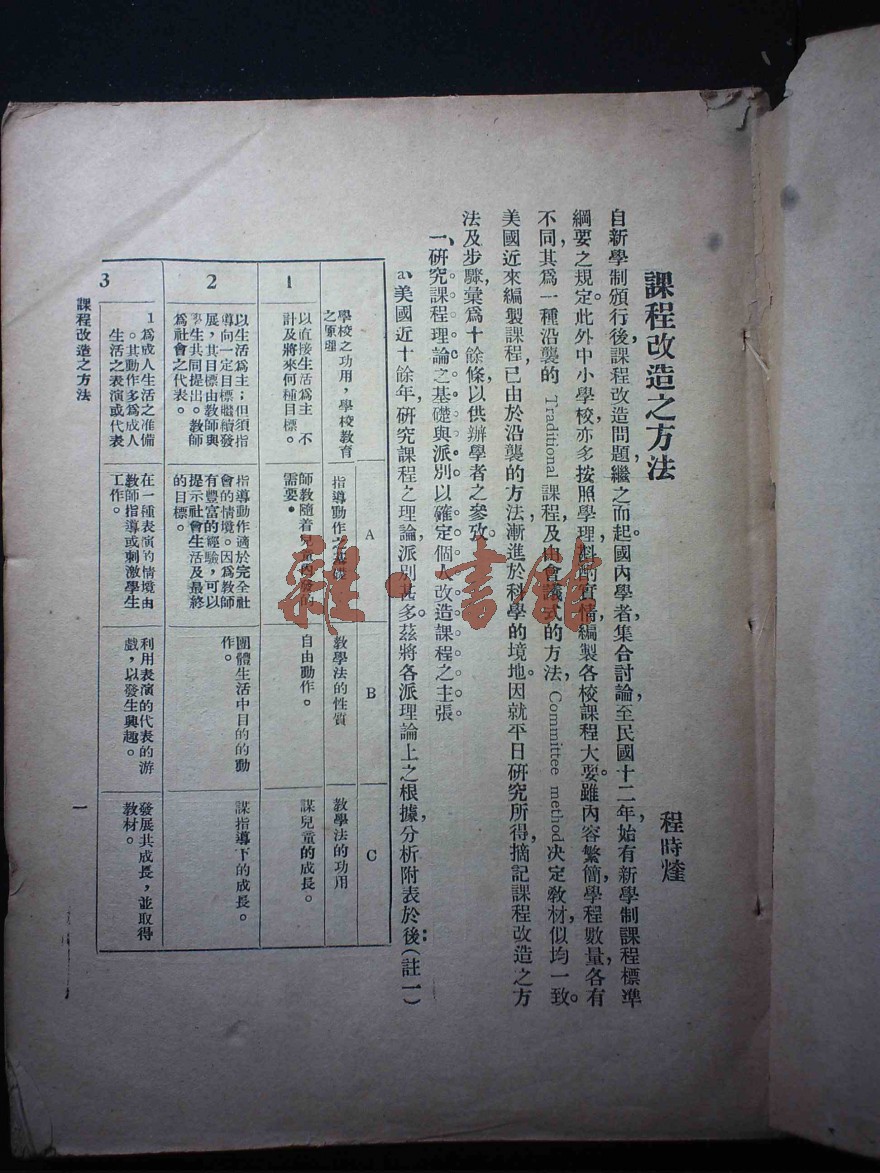 課程改造之方法
程時煃
自新學制頒行後,課程改造問題繼之而起。國內學者集合討論,至民國十二年,始有新學制課程標準
綱要之規定。此外中小學校,亦多按照學理,斟酌實情,編製各校課程大要。雖內容繁簡,學程數量,各有
不同,其爲一種沿襲的 Traditional 課程,及由會議式的方法,Committee method 决定教材,似均一致。
美國近來編製課程,已由於沿襲的方法,漸進於科學的境地。因就平日研究所得,摘記課程改造之方
法及步驟,彙爲十餘條,以供辦學者之參攷。
一、研究課程理論之基礎與派別以確定個人改造課程之主張。
a、美國近十餘年,研究課程之理論,派別甚多。茲將各派理論上之根據,分析附表於後:(註一)
A
B
C
學校之功用,學校教育
之原理
指導動作之基礎
教學法的性質
教學法的功用
1
以直接生活爲主,不
計及將來何種目標。
師教隨着兒童內發的
需要。
自由動作。
謀兒童的成長。
2
以生活爲主;但須指
導向一定目標繼續發
展,其目標由教師與
學生共同提出。教師
爲社會之代表。
指導動作適於完全社
會的情境。因爲教師
有豐富的經驗,可以
提示社會生活及最終
的目標。
團體生活中目的的動
作。
謀指導下的成長。
3
1爲成人生活之准備
。其動作多爲成人
生活之表演或代表
在一種表演的情境由
教師指導或刺激學生
工作。
利用表演的代表的游
戲,以發生興趣。
發展其成長,並取得
教材。
課程改造之方法
一
雜·書館